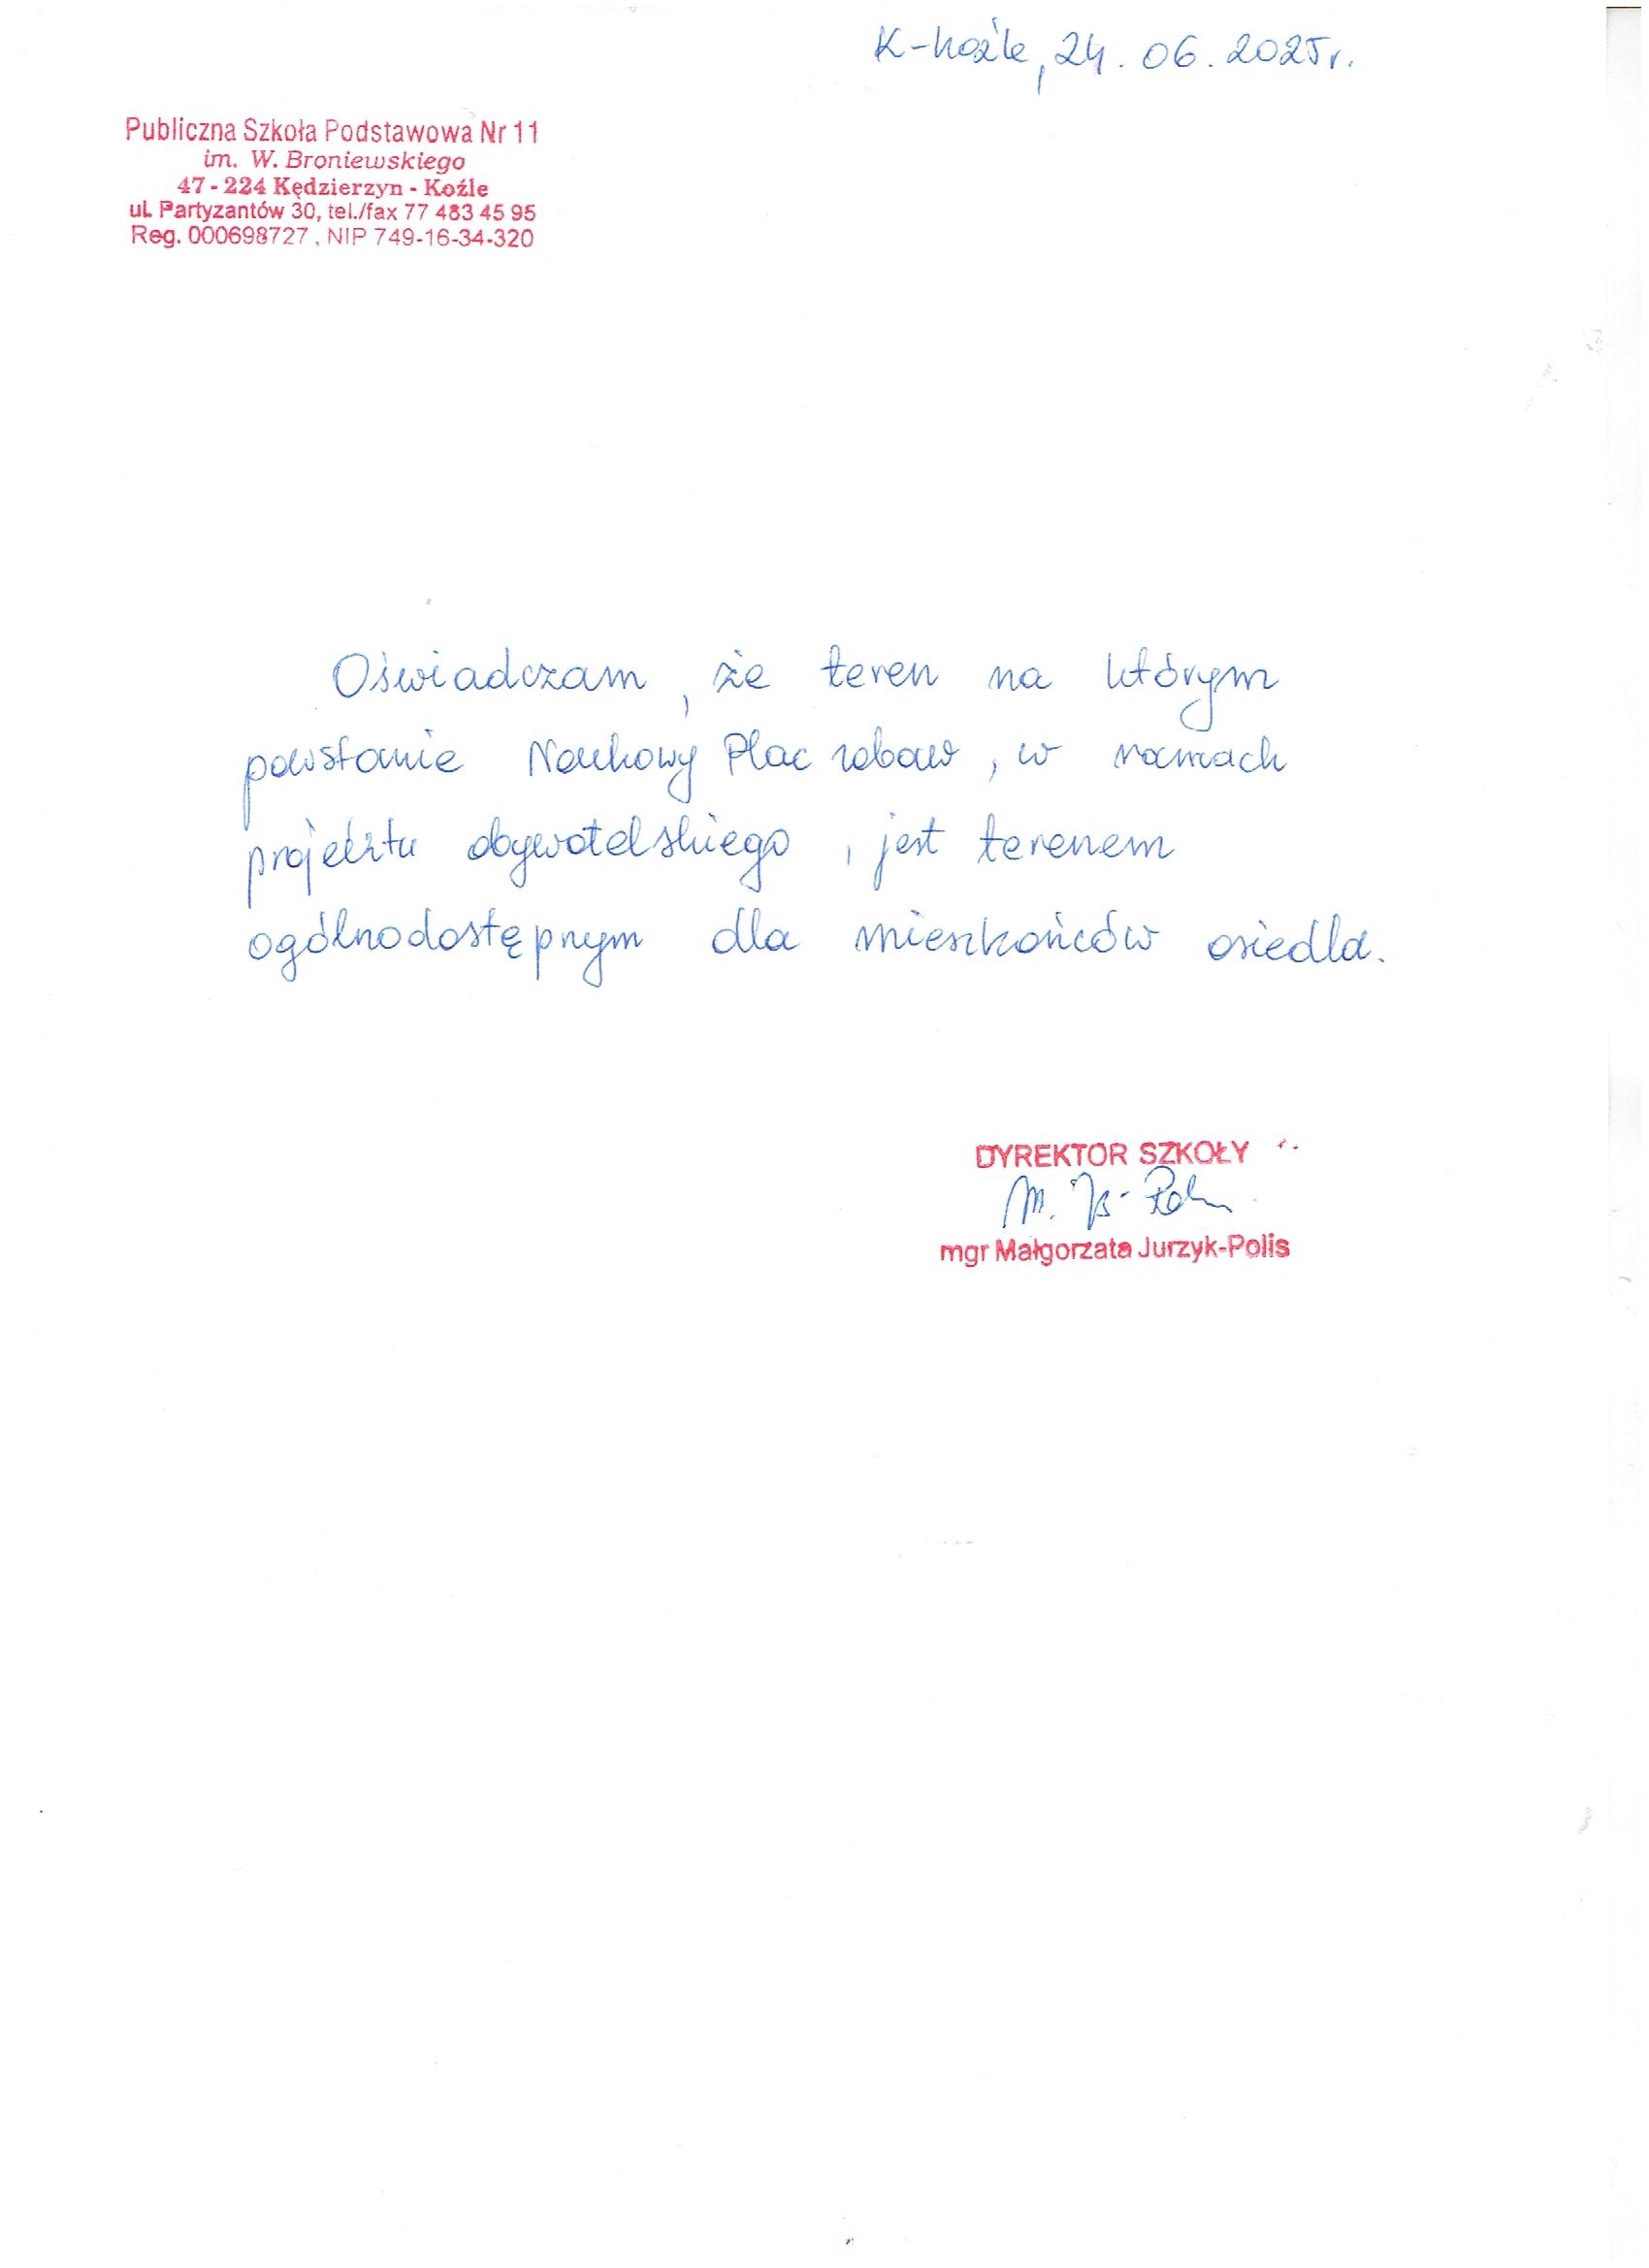 K-Koźle, 24. 06. 2025r.
Publiczna Szkoła Podstawowa Nr 11
im. W. Broniewskiego
47-224 Kędzierzyn - Koźle
ul. Partyzantów 30, tel./fax 77 483 45 95
Reg. 000698727, NIP 749-16-34-320
Oświadczam, że teren na którym
powstanie Naukowy Plac zabaw, w ramach
projektu obywatelskiego, jest terenem
ogólnodostępnym dla mieszkańców osiedla.
DYREKTOR SZKOŁY
mgr Małgorzata Jurzyk-Polis